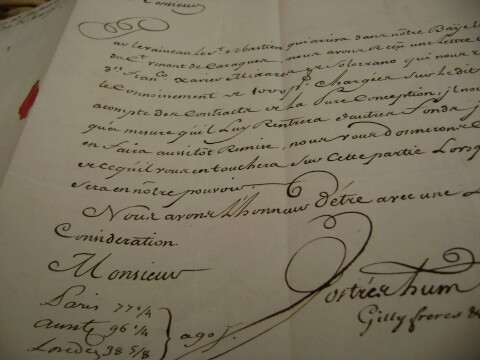 Monsieur
avec le vaisseau le St Sebastien qui arriva dans nôtre Baye
venant de Caraques, nous avons reçu une lettre
Franco Xavier Mixares de Solorzano qui nous
le Connoissement de 1000 pf Chargées Sur ledit
acompte des Contracts de la Pure Conception, il nou
qu'a mesure qu'il Luy Rentrera d'autres fonds j
en faira aussitôt Remise, nous vous donnerons
et ce qu'il vous en touchera Sur Cette partie Lorsqu
Sera en nôtre pouvoir.
Nous avons l'honneur d'être avec une
Consideration
Monsieur
Vos trés hum
Gilly freres
Paris 77 1/4
Amstm 96 1/4
Londres 38 5/8
ago